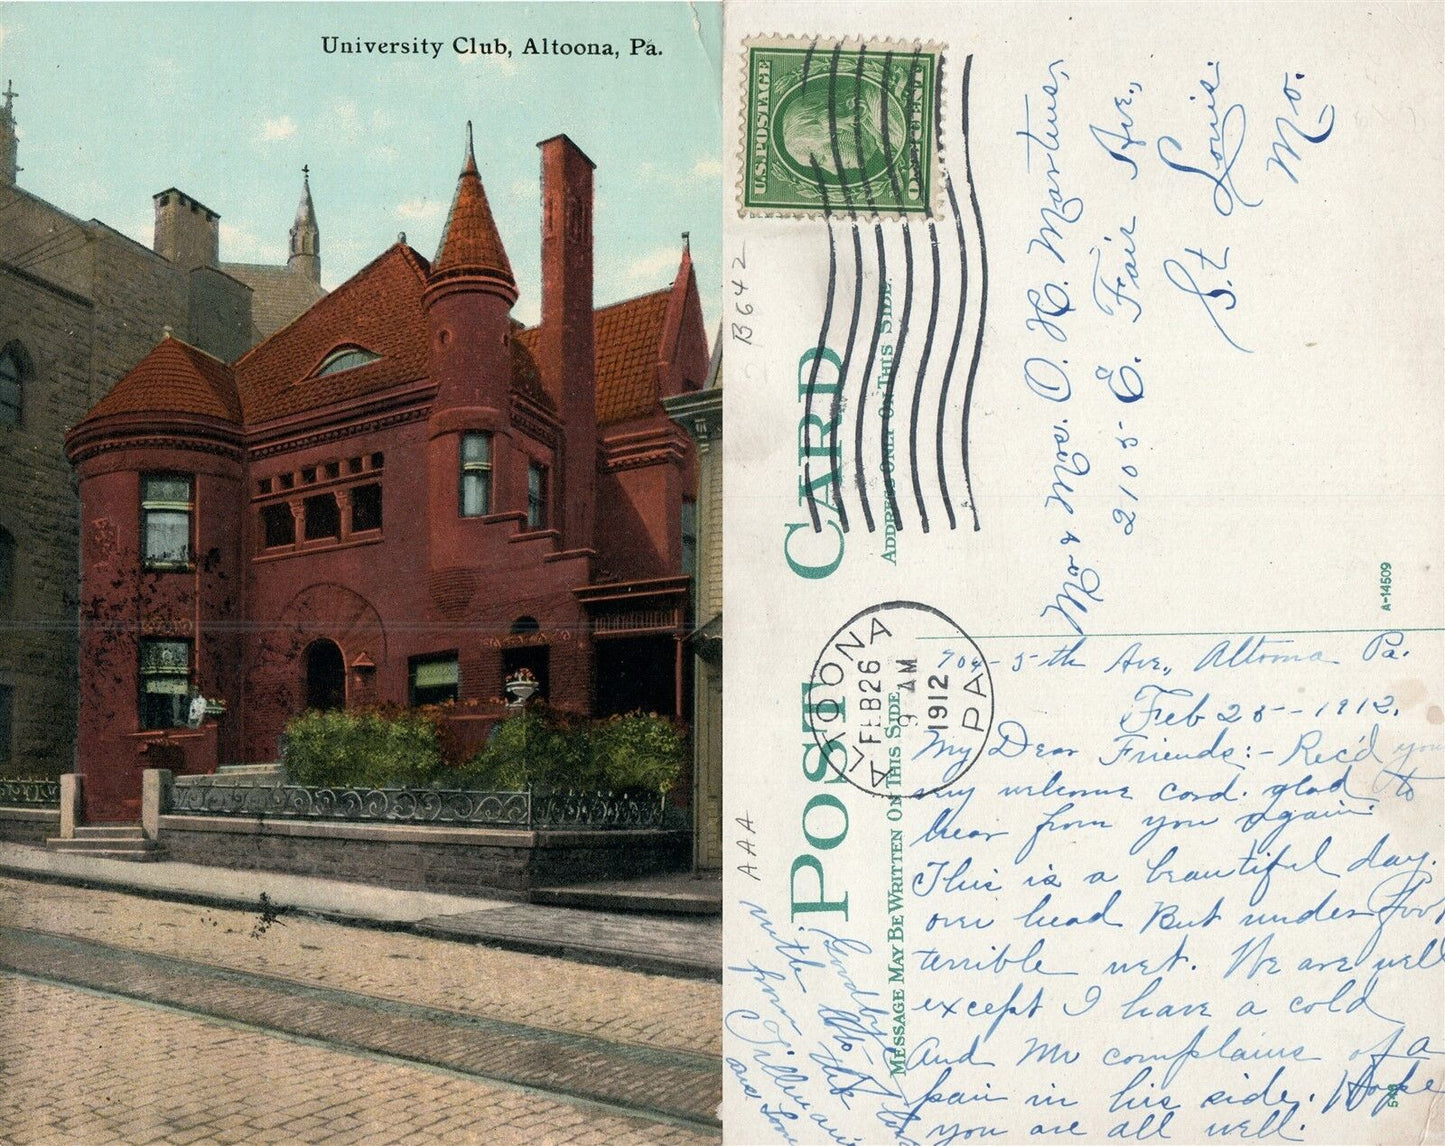 University Club, Altoona, Pa.
U.S. POSTAGE
ONE CENT
B642
POST CARD
ADDRESS ONLY ON THIS SIDE.
MESSAGE MAY BE WRITTEN ON THIS SIDE
ALTOONA
PA.
FEB 26
9 AM
1912
Mr & Mrs. O. H. Martins,
2105 E. Fair Ave.,
St Louis.
Mo.
A-14509
904-5-th Ave., Altoona Pa.
Feb 25-1912.
My Dear Friends:- Rec'd your
very welcome card. glad to
hear from you again.
This is a beautiful day.
over head But under foot
terrible wet. We are well
except I have a cold
And Mr complains of a
pain in his side. Hope
you are all well.
Goodby
with
from
AAA